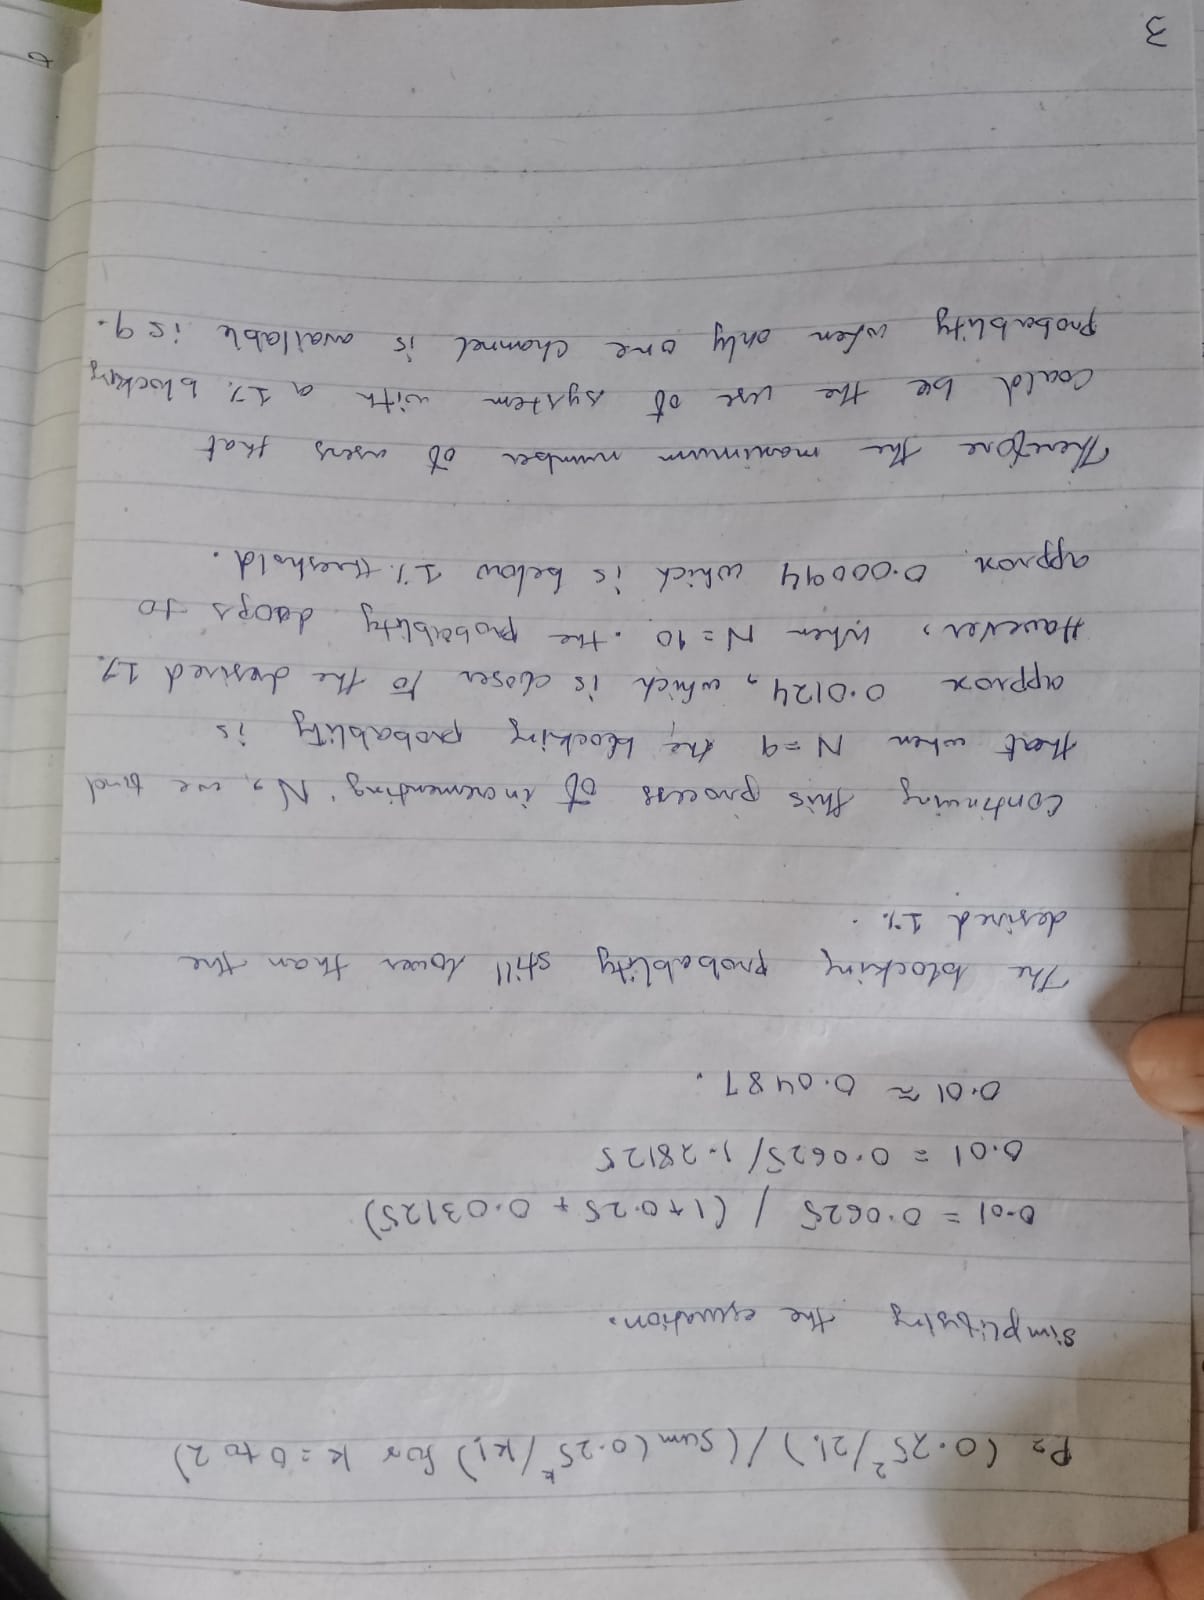 P= (0.25²/2!) / (Sum (0.25ᵏ/k!) for k=0 to 2)
Simplifying the equation.
0.01 = 0.0625 / (1+0.25 + 0.03125)
0.01 = 0.0625/1.28125
0.01 ≈ 0.0487.
The blocking probablity still lower than the
desired 1%.
Continuing this process of incrementing N, we find
that when N=9 the blocking probablity is
approx 0.0124, which is closer to the desired 1%.
However, when N=10 the probablity drops to
approx 0.00094 which is below 1% threshold.
Therefore the maximum number of users that
could be the use of system with a 1% blocking
probablity when only one channel is available is 9.
3